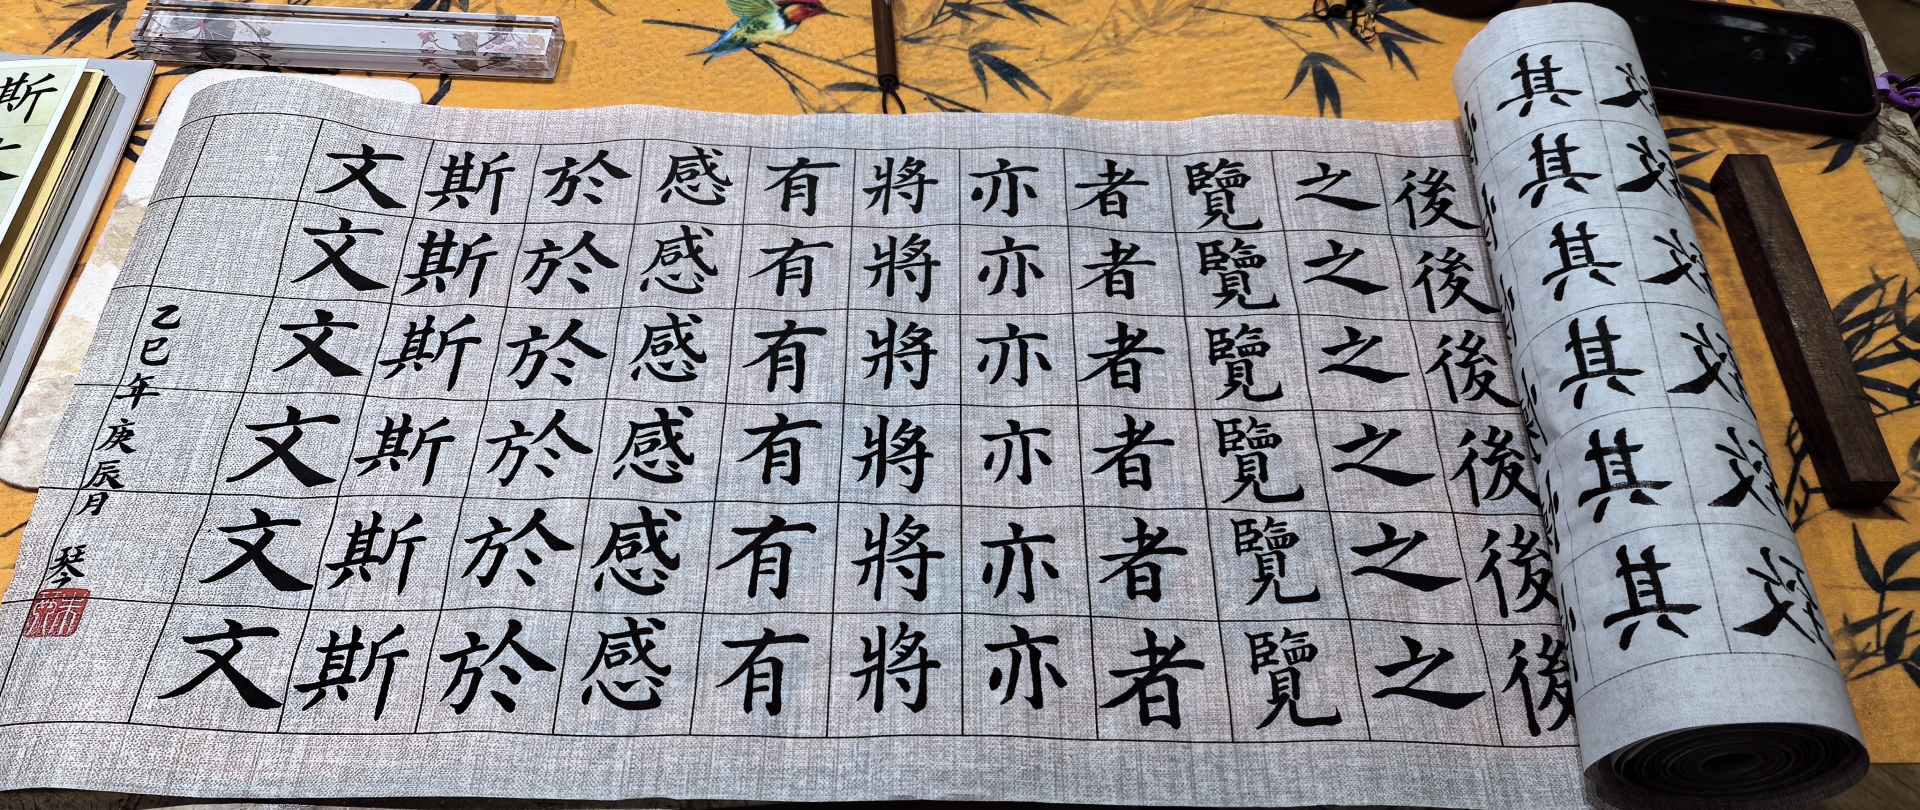 其其其其其其
後後後後後後
之之之之之之
覽覽覽覽覽覽
者者者者者者
亦亦亦亦亦亦
將將將將將將
有有有有有有
感感感感感感
於於於於於於
斯斯斯斯斯斯
文文文文文文
乙巳年庚辰月 琴
斯